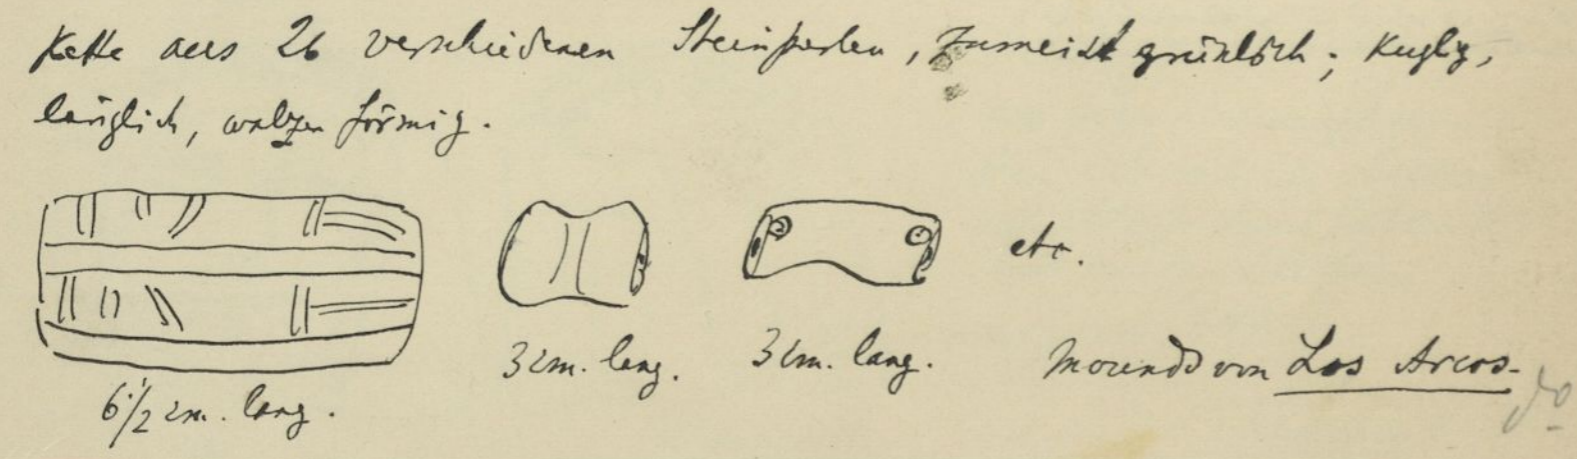 Kette aus 26 verschiedenen Steinperlen, zumeist grünlich; kuglig,
länglich, walzenförmig.
etc.
6 1/2 cm. lang.
3 cm. lang.
3 cm. lang.
Mounds von Los Arcos.
do